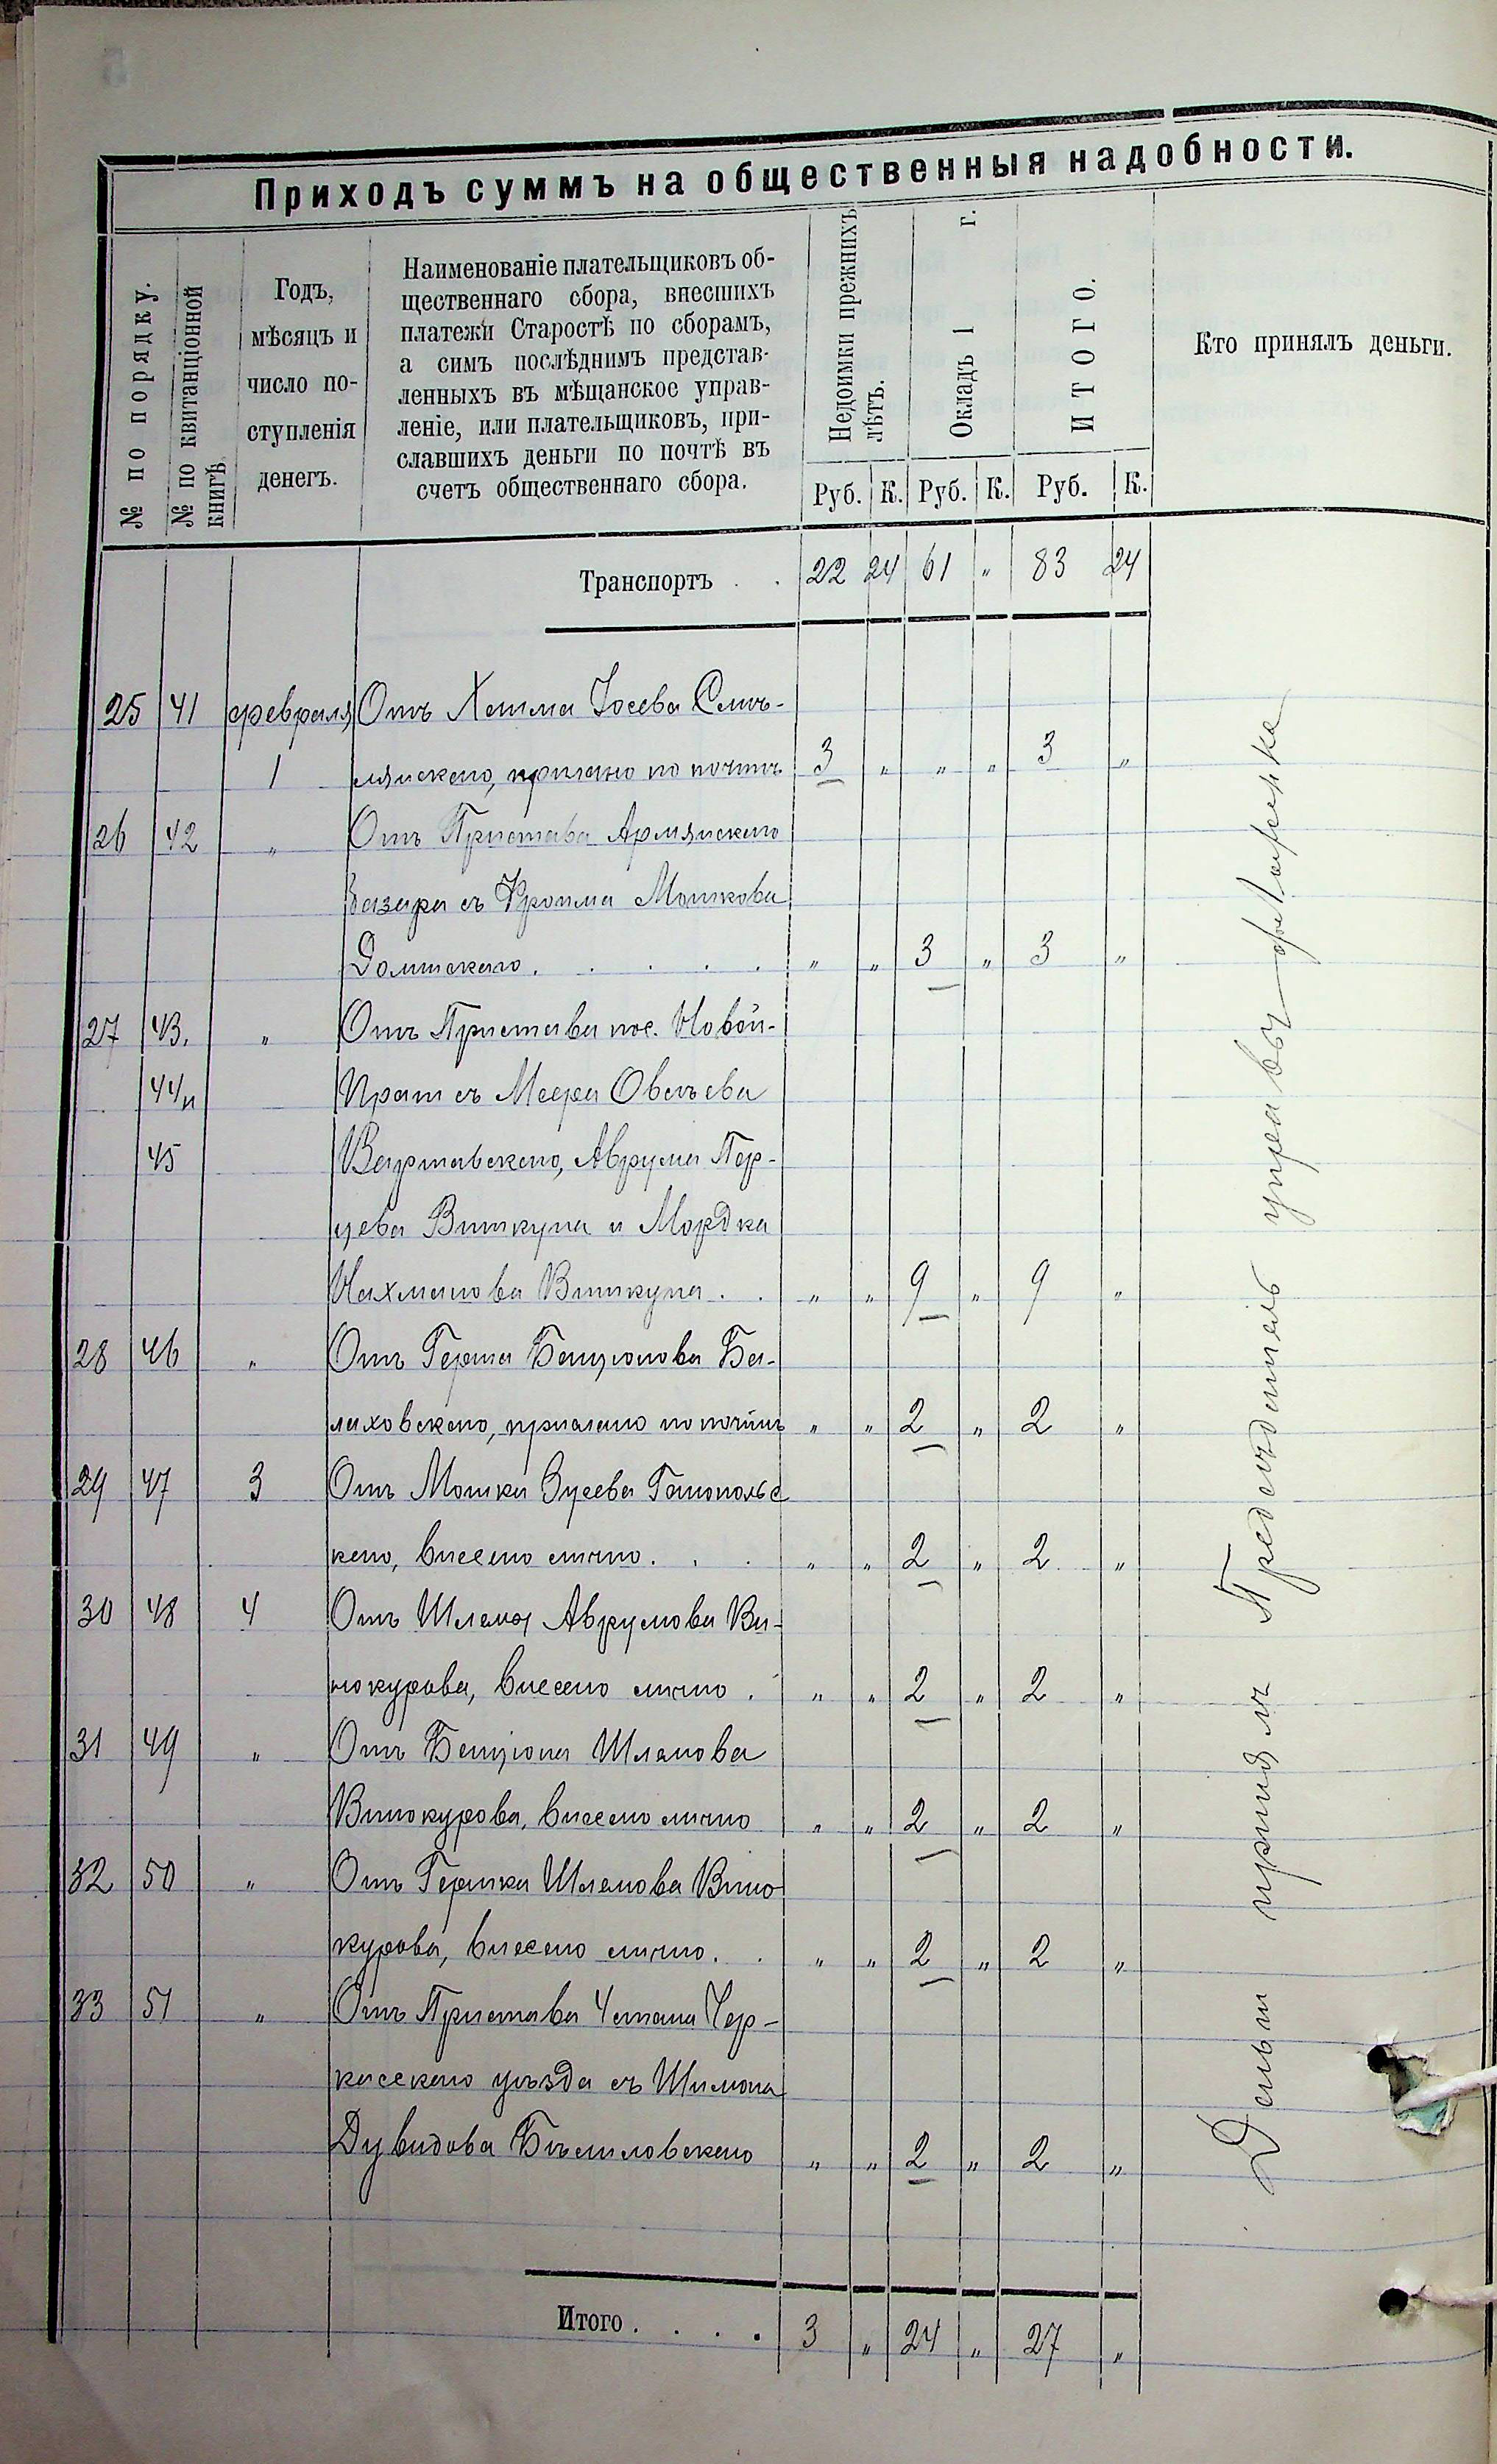 Приходъ суммъ на общественныя надобности.
№ по порядку.
№ по квитанціонной
книгѣ.
Годъ,
мѣсяцъ и
число по-
ступленія
денегъ.
Наименованіе плательщиковъ об-
щественнаго сбора, внесшихъ
платежи Старостѣ по сборамъ,
а симъ послѣднимъ представ-
ленныхъ въ мѣщанское управ-
леніе, или плательщиковъ, при-
славшихъ деньги по почтѣ въ
счетъ общественнаго сбора.
Недоимки прежнихъ
лѣтъ.
Окладъ 1 г.
ИТОГО.
Кто принялъ деньги.
Руб. К. Руб. К. Руб. К.
Транспортъ . . 22 24 61 „ 83 24
25 41 февраля Отъ Хаима Іосева Смѣ-
1 лянскаго, прислано по почтѣ 3 „ „ „ 3 „
26 42 „ Отъ Пристава Армянскаго
базара съ Фроима Мошкова
„ „ 3 „ 3 „
27 43, „ Отъ Пристава пос. Новой-
44 и Праги съ Меера
45 Варшавскаго, Аврума Пер-
цева Виткупа и Мордка
Нахманова Виткупа . . „ „ 9 „ 9 „
28 46 „ Отъ Герша Бенціонова Ба-
лаховскаго, прислано по почтѣ „ „ 2 „ 2 „
29 47 3 Отъ Мошки Зусева Ганопольс
каго, внесено лично . . . „ „ 2 „ 2 „
30 48 4 Отъ Шлемы Аврумова Ви-
нокурова, внесено лично . „ „ 2 „ 2 „
31 49 „ Отъ Бенціона Шлемова
Винокурова, внесено лично „ „ 2 „ 2 „
32 50 „ Отъ Гершки Шлемова Вино
курова, внесено лично . . „ „ 2 „ 2 „
33 51 „ Отъ Пристава 4 стана Чер-
касскаго уѣзда съ Шимона
Дувидова „ „ 2 „ 2 „
Итого . . . . 3 „ 24 „ 27 „
Деньги принялъ Предсѣдатель управы